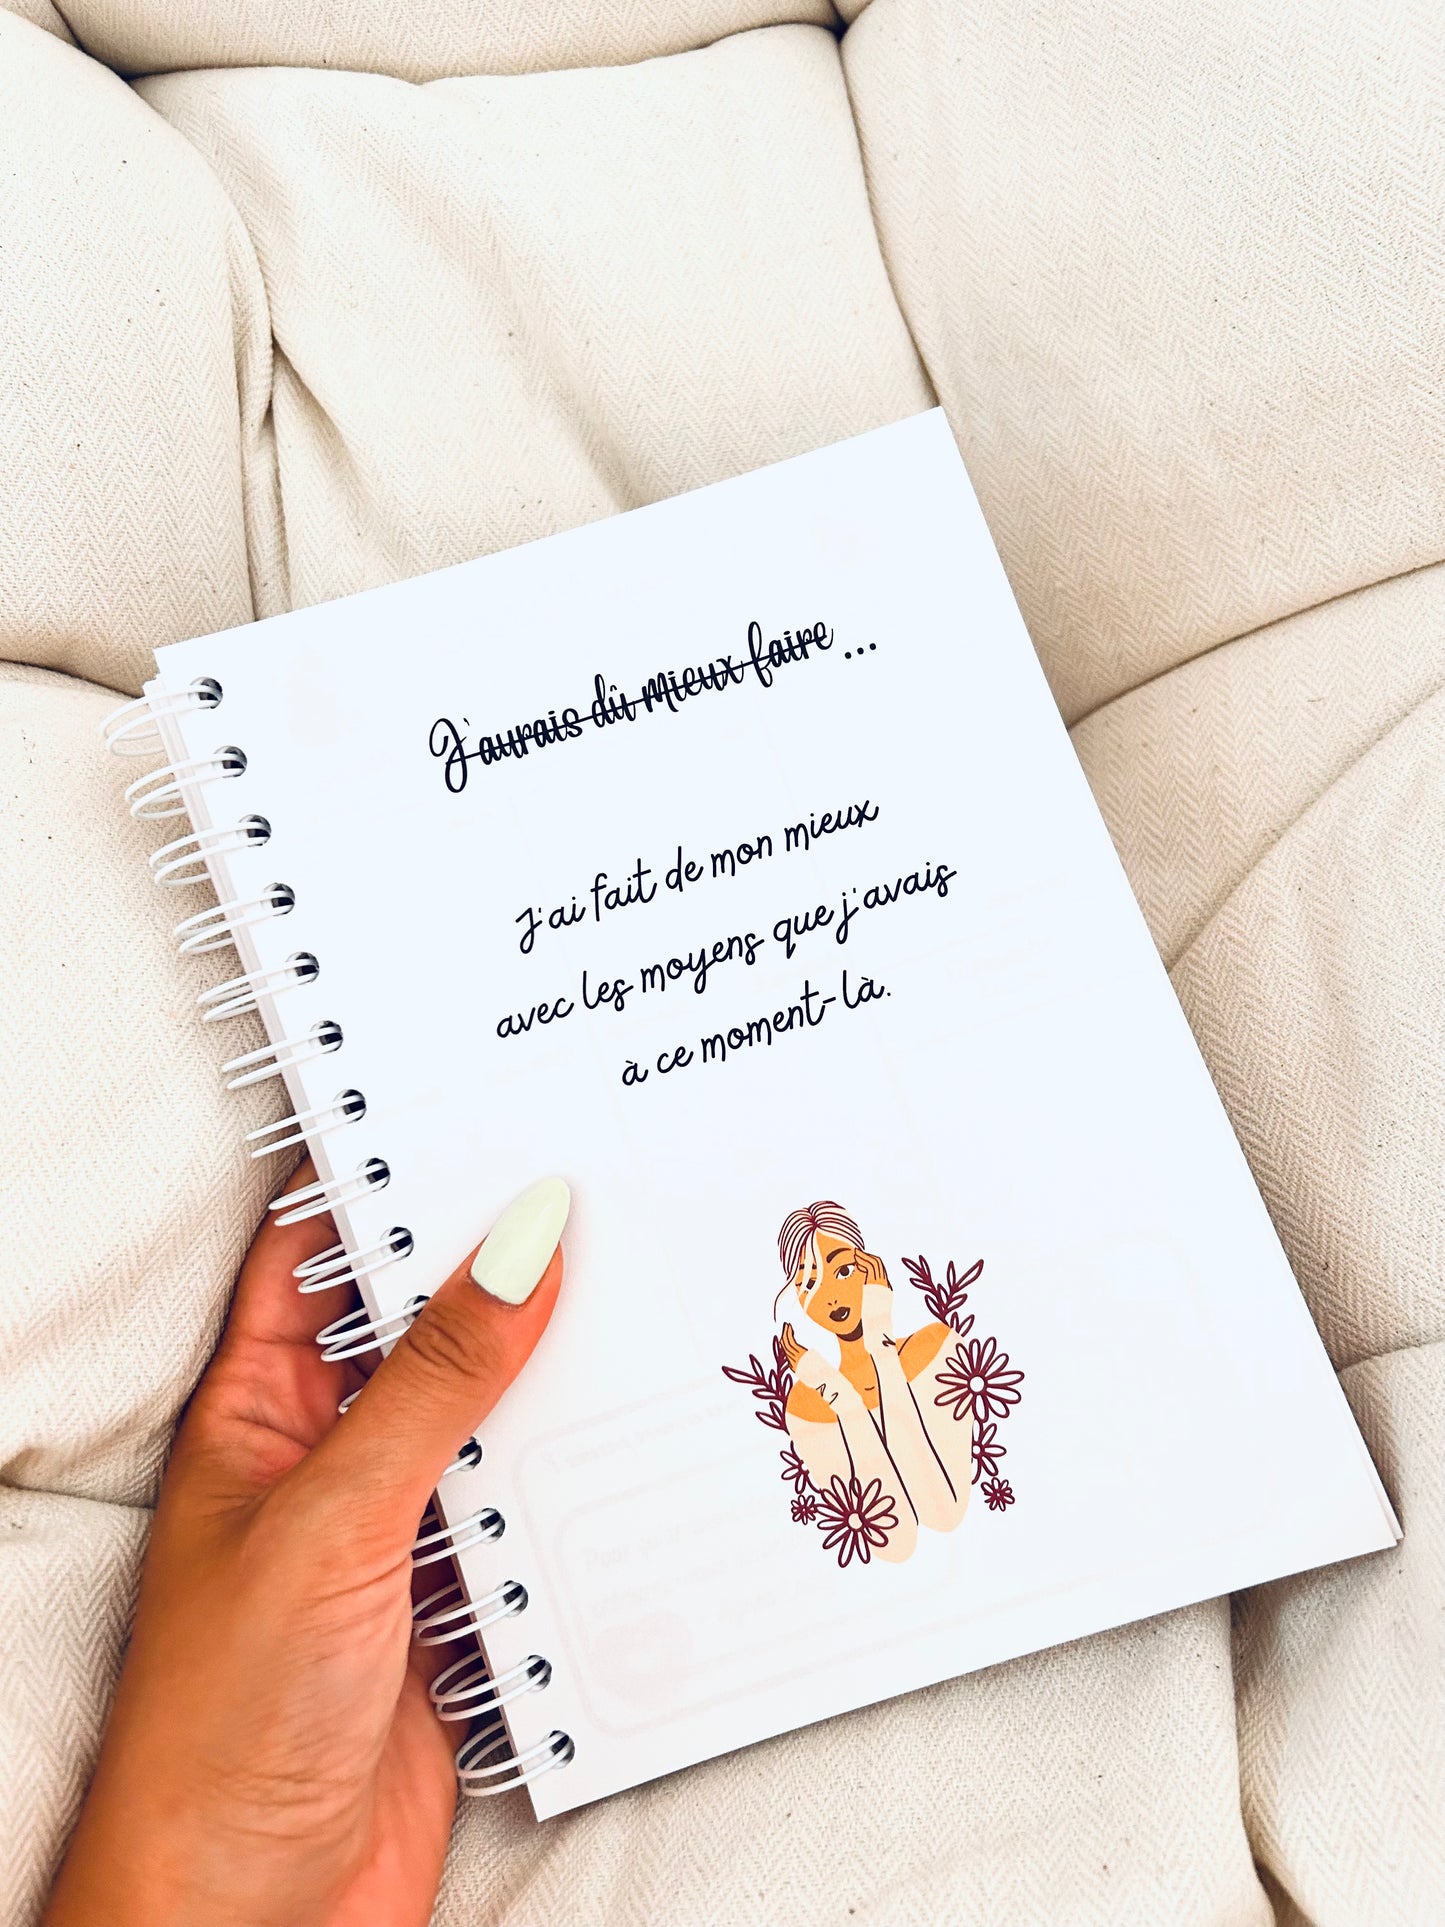 J'aurais dû mieux faire ...
J'ai fait de mon mieux
avec les moyens que j'avais
à ce moment-là.